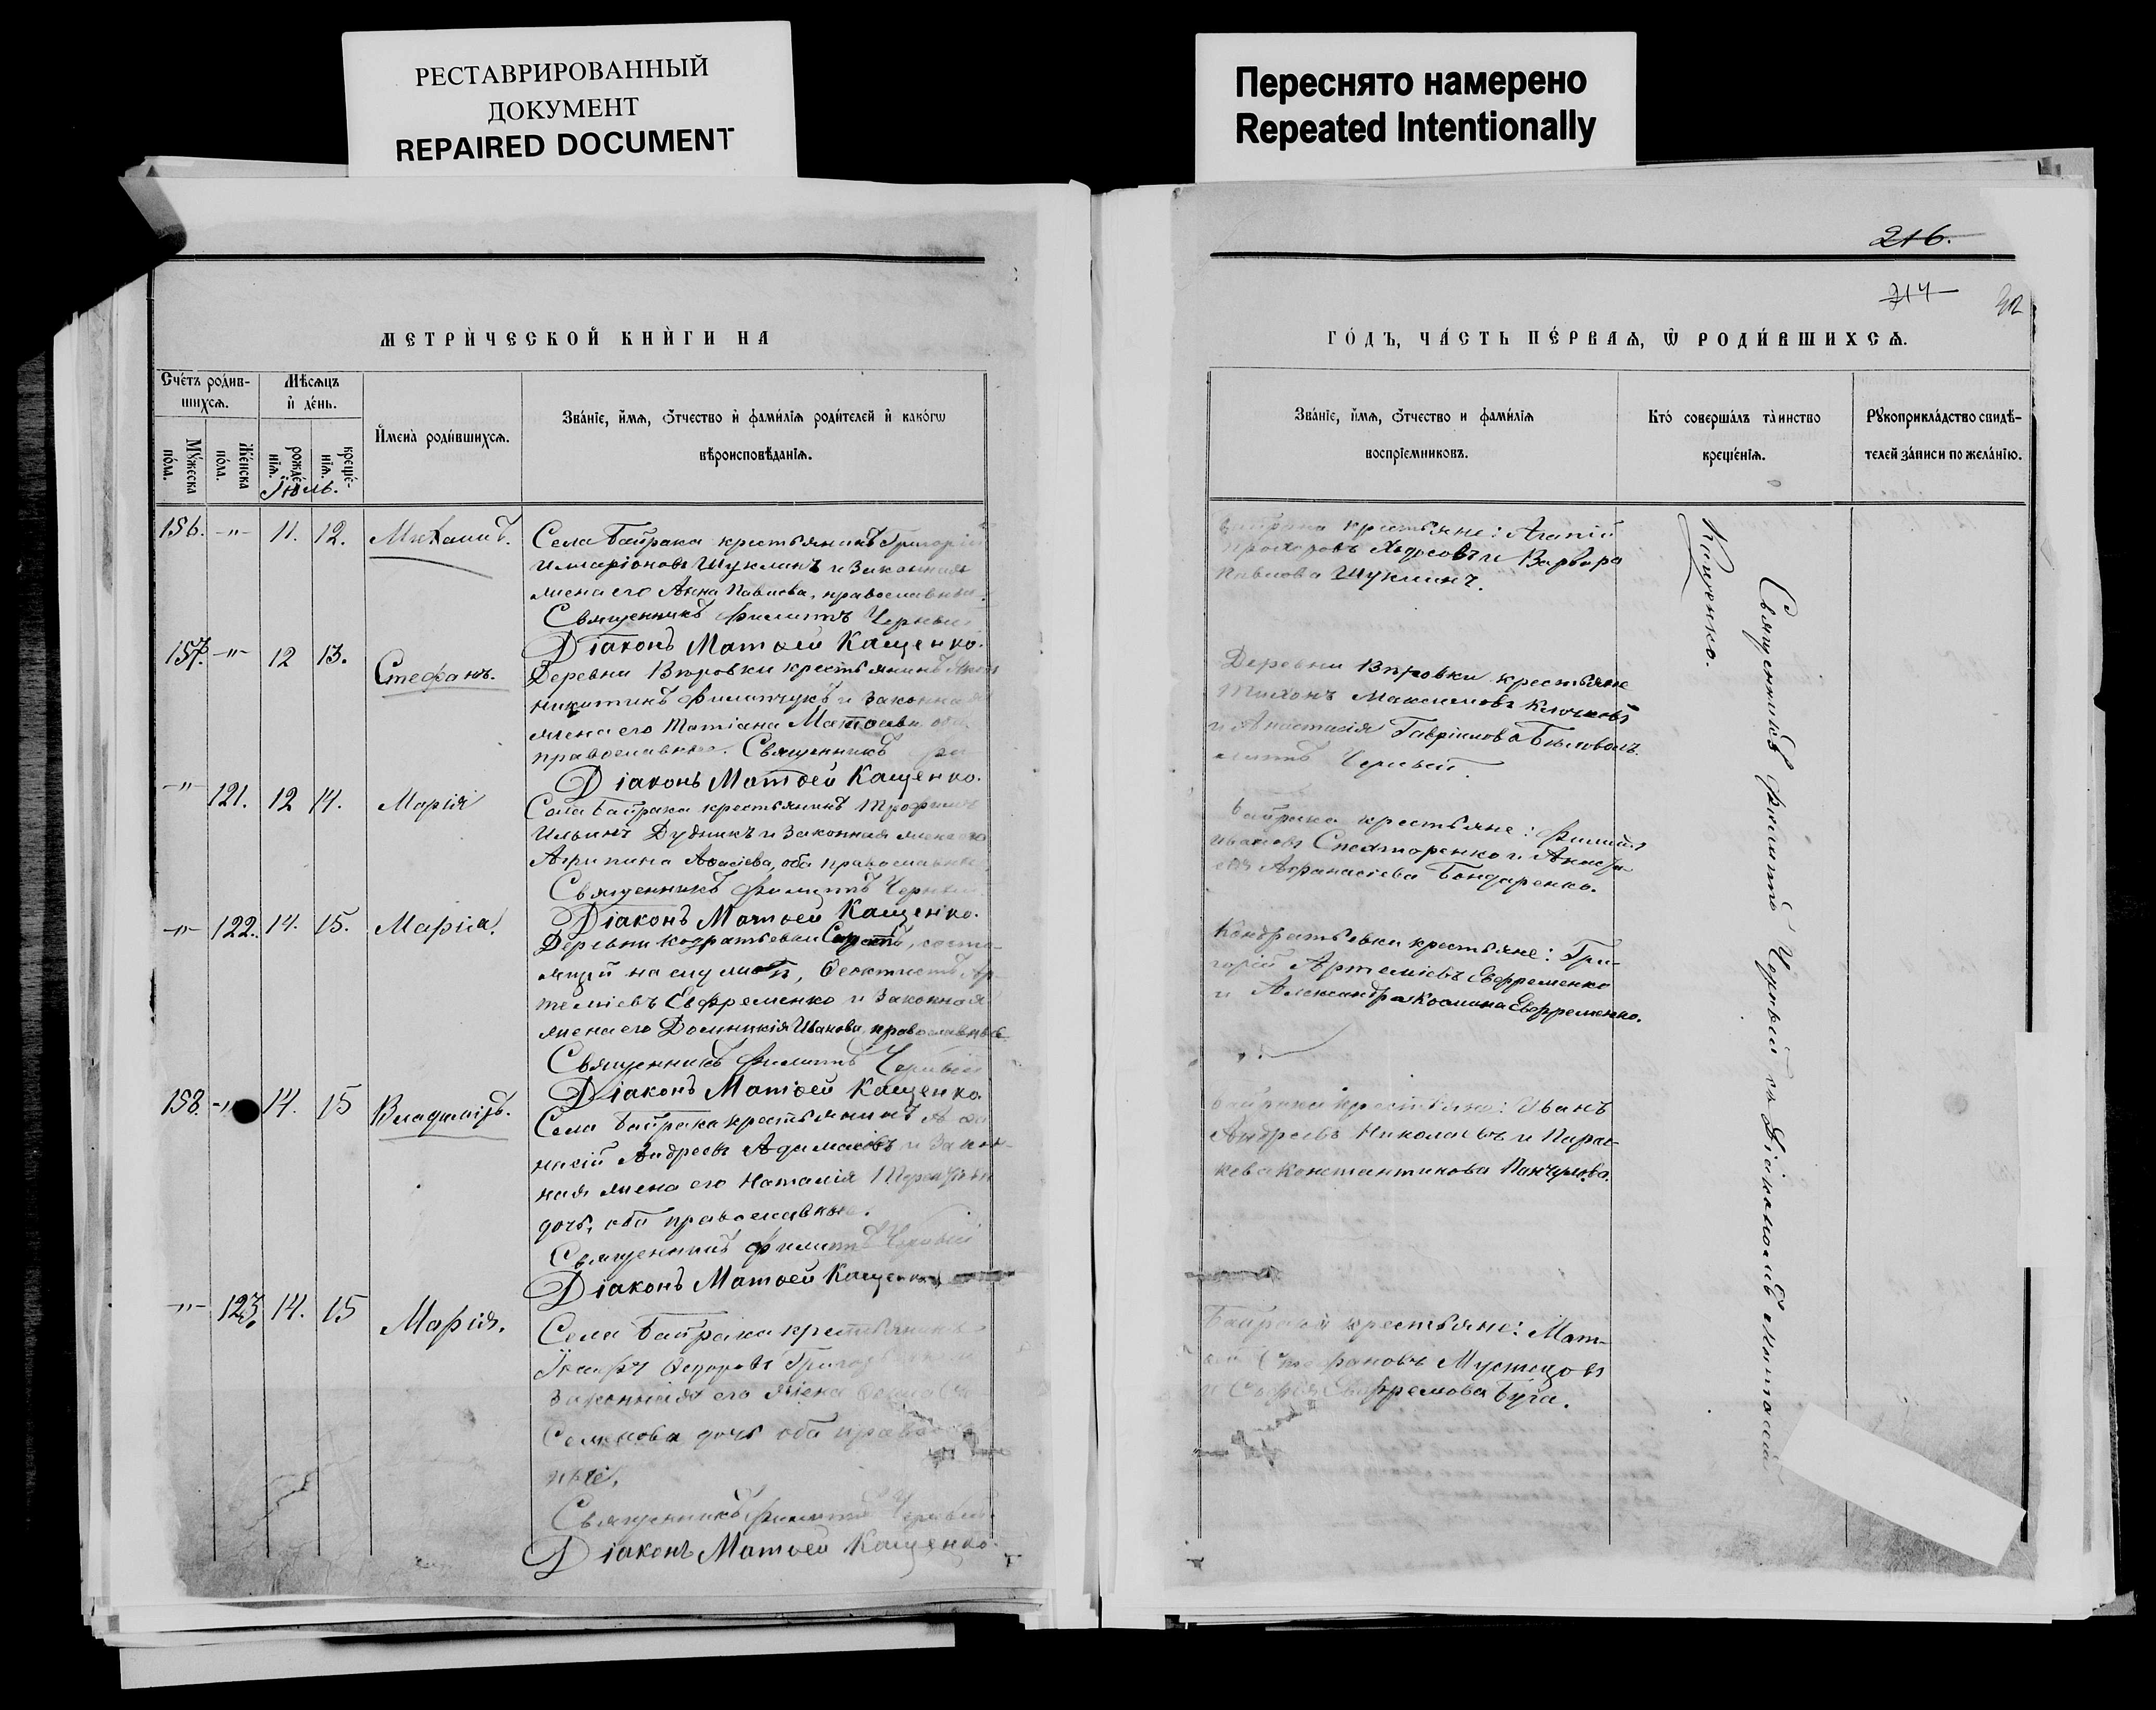 РЕСТАВРИРОВАННЫЙ
ДОКУМЕНТ
REPAIRED DOCUMENT
Переснято намерено
Repeated Intentionally
216.
214
МЕТРИ́ЧЕСКОЙ КНИ́ГИ НА
Сче́тъ роди́в-
шихсѧ.
Мѣ́сѧцъ
и҆ де́нь.
Мꙋ́жеска
по́ла.
Же́нска
по́ла.
рожде́-
нїѧ.
креще́-
нїѧ.
И҆мена̀ роди́вшихсѧ.
Зва́нїе, и҆́мѧ, ѻ҆́тчество и҆ фами́лїѧ роди́телей и҆ како́гѡ
вѣроисповѣ́данїѧ.
Іюль.
156. -"- 11. 12. Михаилъ.
Села Байрака крестьянинъ Григорій
Иларіоновъ Шуклинъ и законная
жена его Анна Павлова, православные.
Священникъ Филиппъ Черный
Діаконъ Матѳей Кащенко.
157. -"- 12 13. Стефанъ.
Деревни Вѣровки крестьянинъ
Никитинъ Филипчукъ и законная
жена его Татіана Матѳеева оба
православные. Священникъ Фи-
Діаконъ Матѳей Кащенко.
-"- 121. 12 14. Марія
Села Байрака крестьянинъ Трофимъ
Ильинъ Дудникъ и законная жена его
Агрипина оба православные
Священникъ Филиппъ Черный
Діаконъ Матѳей Кащенко.
-"- 122. 14. 15. Маріа.
Деревни Кодратьевки Солдатъ, состо-
ящій на службѣ, Ѳеоктистъ Ар-
темьевъ Евфременко и законная
жена его Домникія Иванова, православные
Священникъ Филиппъ Черный
Діаконъ Матѳей Кащенко
158. -"- 14. 15 Владиміръ.
Села Байрака крестьянинъ Аѳа-
насій Андреевъ и закон-
ная жена его Наталія
дочь, оба православные.
Священникъ Филиппъ Черный
Діаконъ Матѳей Кащенко
-"- 123. 14. 15 Марія.
Села Байрака крестьянинъ
Ѳедоровъ
законная его жена
Семенова дочь оба православ-
ные.
Священникъ Филиппъ Черный
Діаконъ Матѳей Кащенко.
ГО́ДЪ, ЧА́СТЬ ПЕ́РВАѦ, Ѡ҆ РОДИ́ВШИХСѦ.
Зва́нїе, и҆́мѧ, ѻ҆́тчество и фами́лїѧ
воспрїе́мниковъ.
Кто̀ соверша́лъ та́инство
креще́нїѧ.
Рꙋкоприкла́дство свидѣ́-
телей за́писи по жела́нїю.
Байрака крестьяне: Агапій
Прохоровъ и Варвара
Павлова Шуклинъ.
Деревни Вѣровки крестьяне
Тихонъ Максимовъ Клочковъ
и Анастасія Гавріилова
липпъ Черный.
Байрака крестьяне: Филиппъ
Ивановъ и
Афанасіева Бондаренко.
Кондратьевки крестьяне: Гри-
горій Артеміевъ Евфременко
и Александра Космина Евфременко.
Байрака крестьяне: Иванъ
Андреевъ Николаевъ и Парас-
кева Константинова
Байрака крестьяне: Мат-
ѳей Стефановъ
и Софія Евфремова Буга.
Священникъ Филиппъ Черный съ Діакономъ Матѳеемъ
Кащенко.